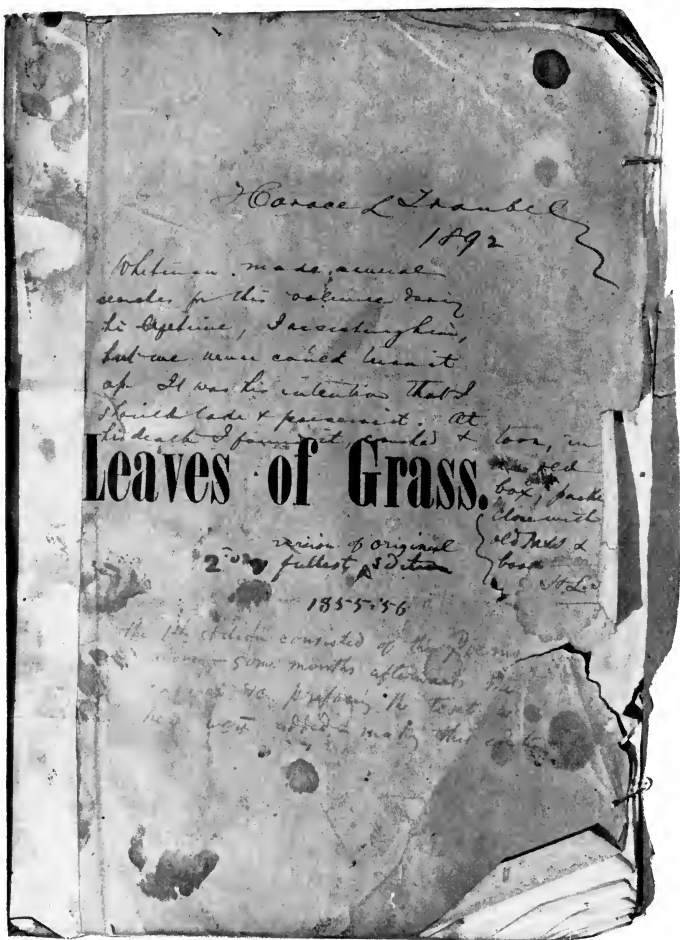 Horace L Traubel
1892
Whitman made several
searches for this volume during
his lifetime, I assisting him,
but we never could turn it
up. It was his intention that I
should take & preserve it. At
his death I found it, & torn, in
an old
box, packed
close with
old MSS &
books
H.L.T
Leaves of Grass.
version of original
2nd fullest Edition
1855-56
The 1st edition consisted of the Poems
some months afterwards the
prefacing the text
added making this